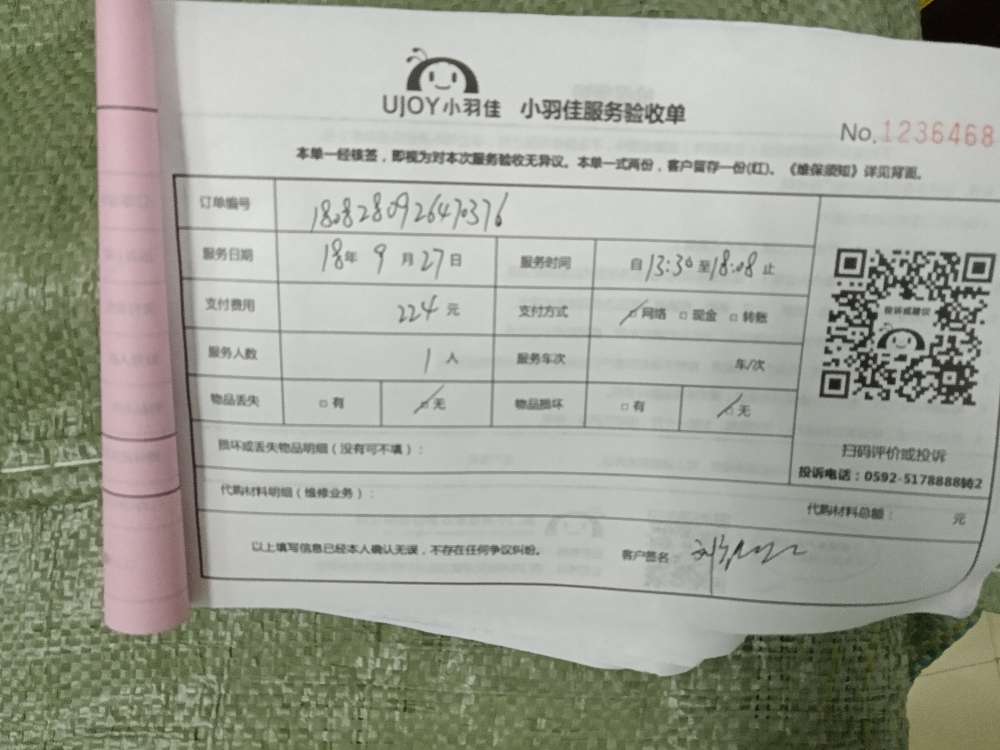 UJOY小羽佳 小羽佳服务验收单
No.1236468
本单一经核签，即视为对本次服务验收无异议。本单一式两份，客户留存一份(红)。《维保须知》详见背面。
订单编号 1808280926470376
服务日期 18年 9月 27日 服务时间 自13:30至18:08止
支付费用 224元 支付方式 □网络 □现金 □转账
服务人数 1人 服务车次 车/次
物品丢失 □有 □无 物品损坏 □有 □无
投诉或建议
扫码评价或投诉
投诉电话：0592-5178888转2
损坏或丢失物品明细（没有可不填）：
代购材料明细（维修业务）： 代购材料总额： 元
以上填写信息已经本人确认无误，不存在任何争议纠纷。 客户签名：